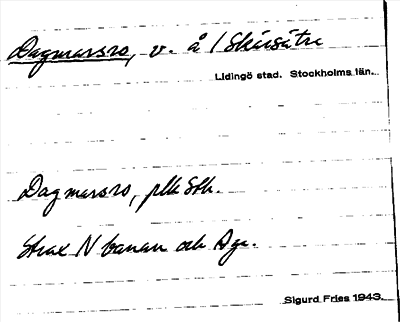 Dagmarsro, v. å 1 Skärsätra
Lidingö stad. Stockholms län.
Dagmarsro, plk Sth.
Strax N banan och Dge.
Sigurd Fries 1943.